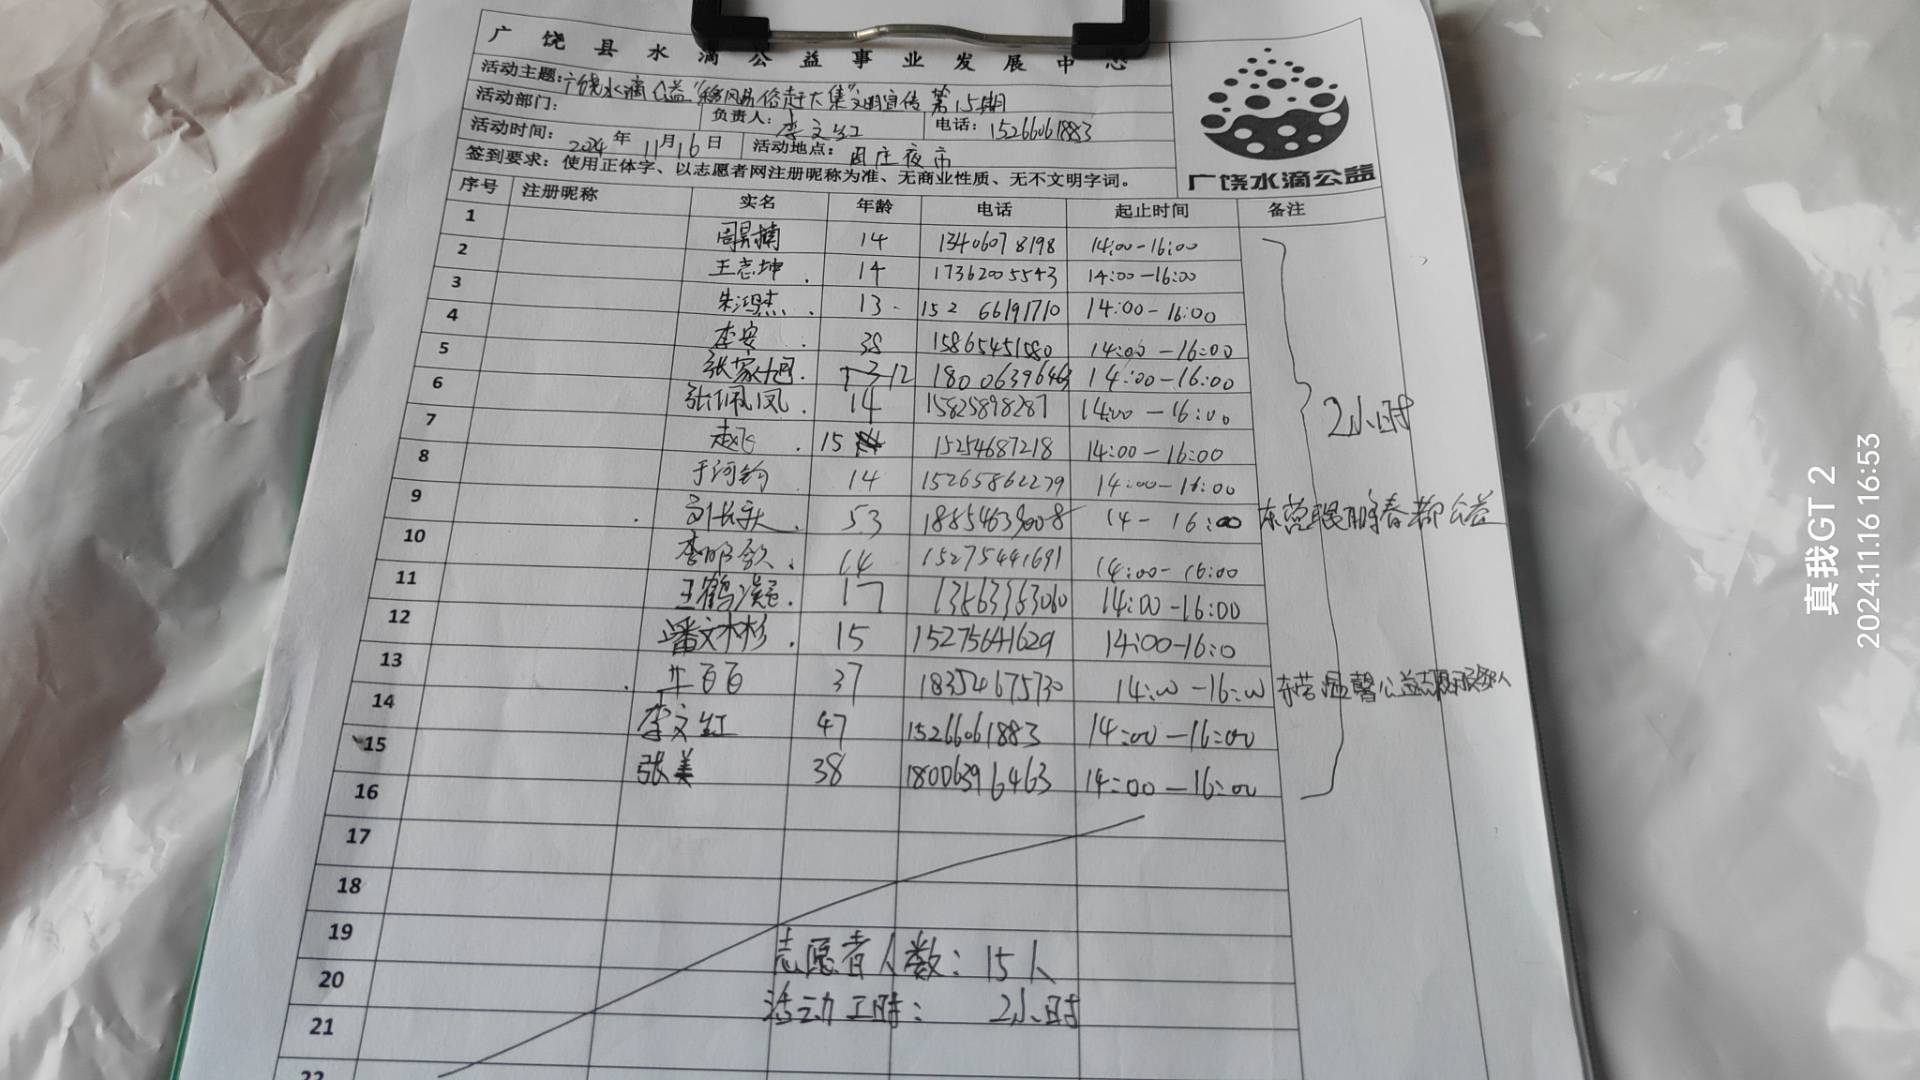 广饶县水滴公益事业发展中心
活动主题:广饶水滴公益"移风易俗赶大集"文明宣传第15期
活动部门: 负责人:李文红 电话:15266061883
活动时间:2024年11月16日 活动地点:周庄夜市
签到要求:使用正体字、以志愿者网注册昵称为准、无商业性质、无不文明字词。
广饶水滴公益
序号 注册昵称 实名 年龄 电话 起止时间 备注
1 14 13406078198 14:00-16:00
2 王志坤 14 17362005543 14:00-16:00
3 朱鸿杰 13 152 66191710 14:00-16:00
4 李安 38 15865451580 14:00-16:00
5 张家旭 12 18006396463 14:00-16:00
6 张佩凤 14 15825898287 14:00-16:00
7 赵飞 15 15254687218 14:00-16:00
8 于河钧 14 15265862279 14:00-16:00
9 53 18854639008 14-16:00
10 李明 14 15275441691 14:00-16:00
11 王鹤凝 17 13563353060 14:00-16:00
12 潘文彬 15 15275641629 14:00-16:0
13 37 18354675730 14:00-16:00
14 李文红 47 15266061883 14:00-16:00
15 张美 38 18006396463 14:00-16:00
2小时
东营 春都公益
东营温馨公益志愿服务
16
17
18
19
20
21
22
志愿者人数:15人
活动工时:2小时
真我GT 2
2024.11.16 16:53